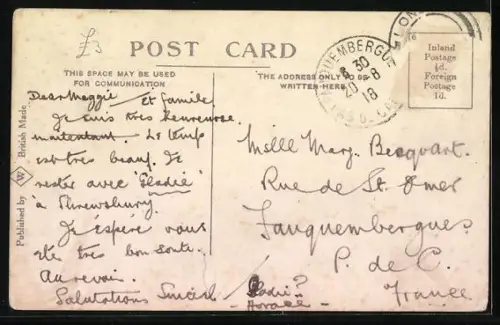 £3
POST CARD
THIS SPACE MAY BE USED
FOR COMMUNICATION
THE ADDRESS ONLY TO BE
WRITTEN HERE
Inland
Postage
½d.
Foreign
Postage
1d.
8 30
20-8
18
LON
Dear Maggie et famile
Je suis tres heureuse
maitentant. Le temps
est tres beau. Je
rester avec "Gladie"
à Shrewsbury.
Je éspére vous
etes tres bon sante.
Au revoir.
Salutations
Gladie?
Horace
Mslle Marg. Becquart.
Rue de St. Omer
Fauquembergues
P. de C.
France
Published by W British Made.